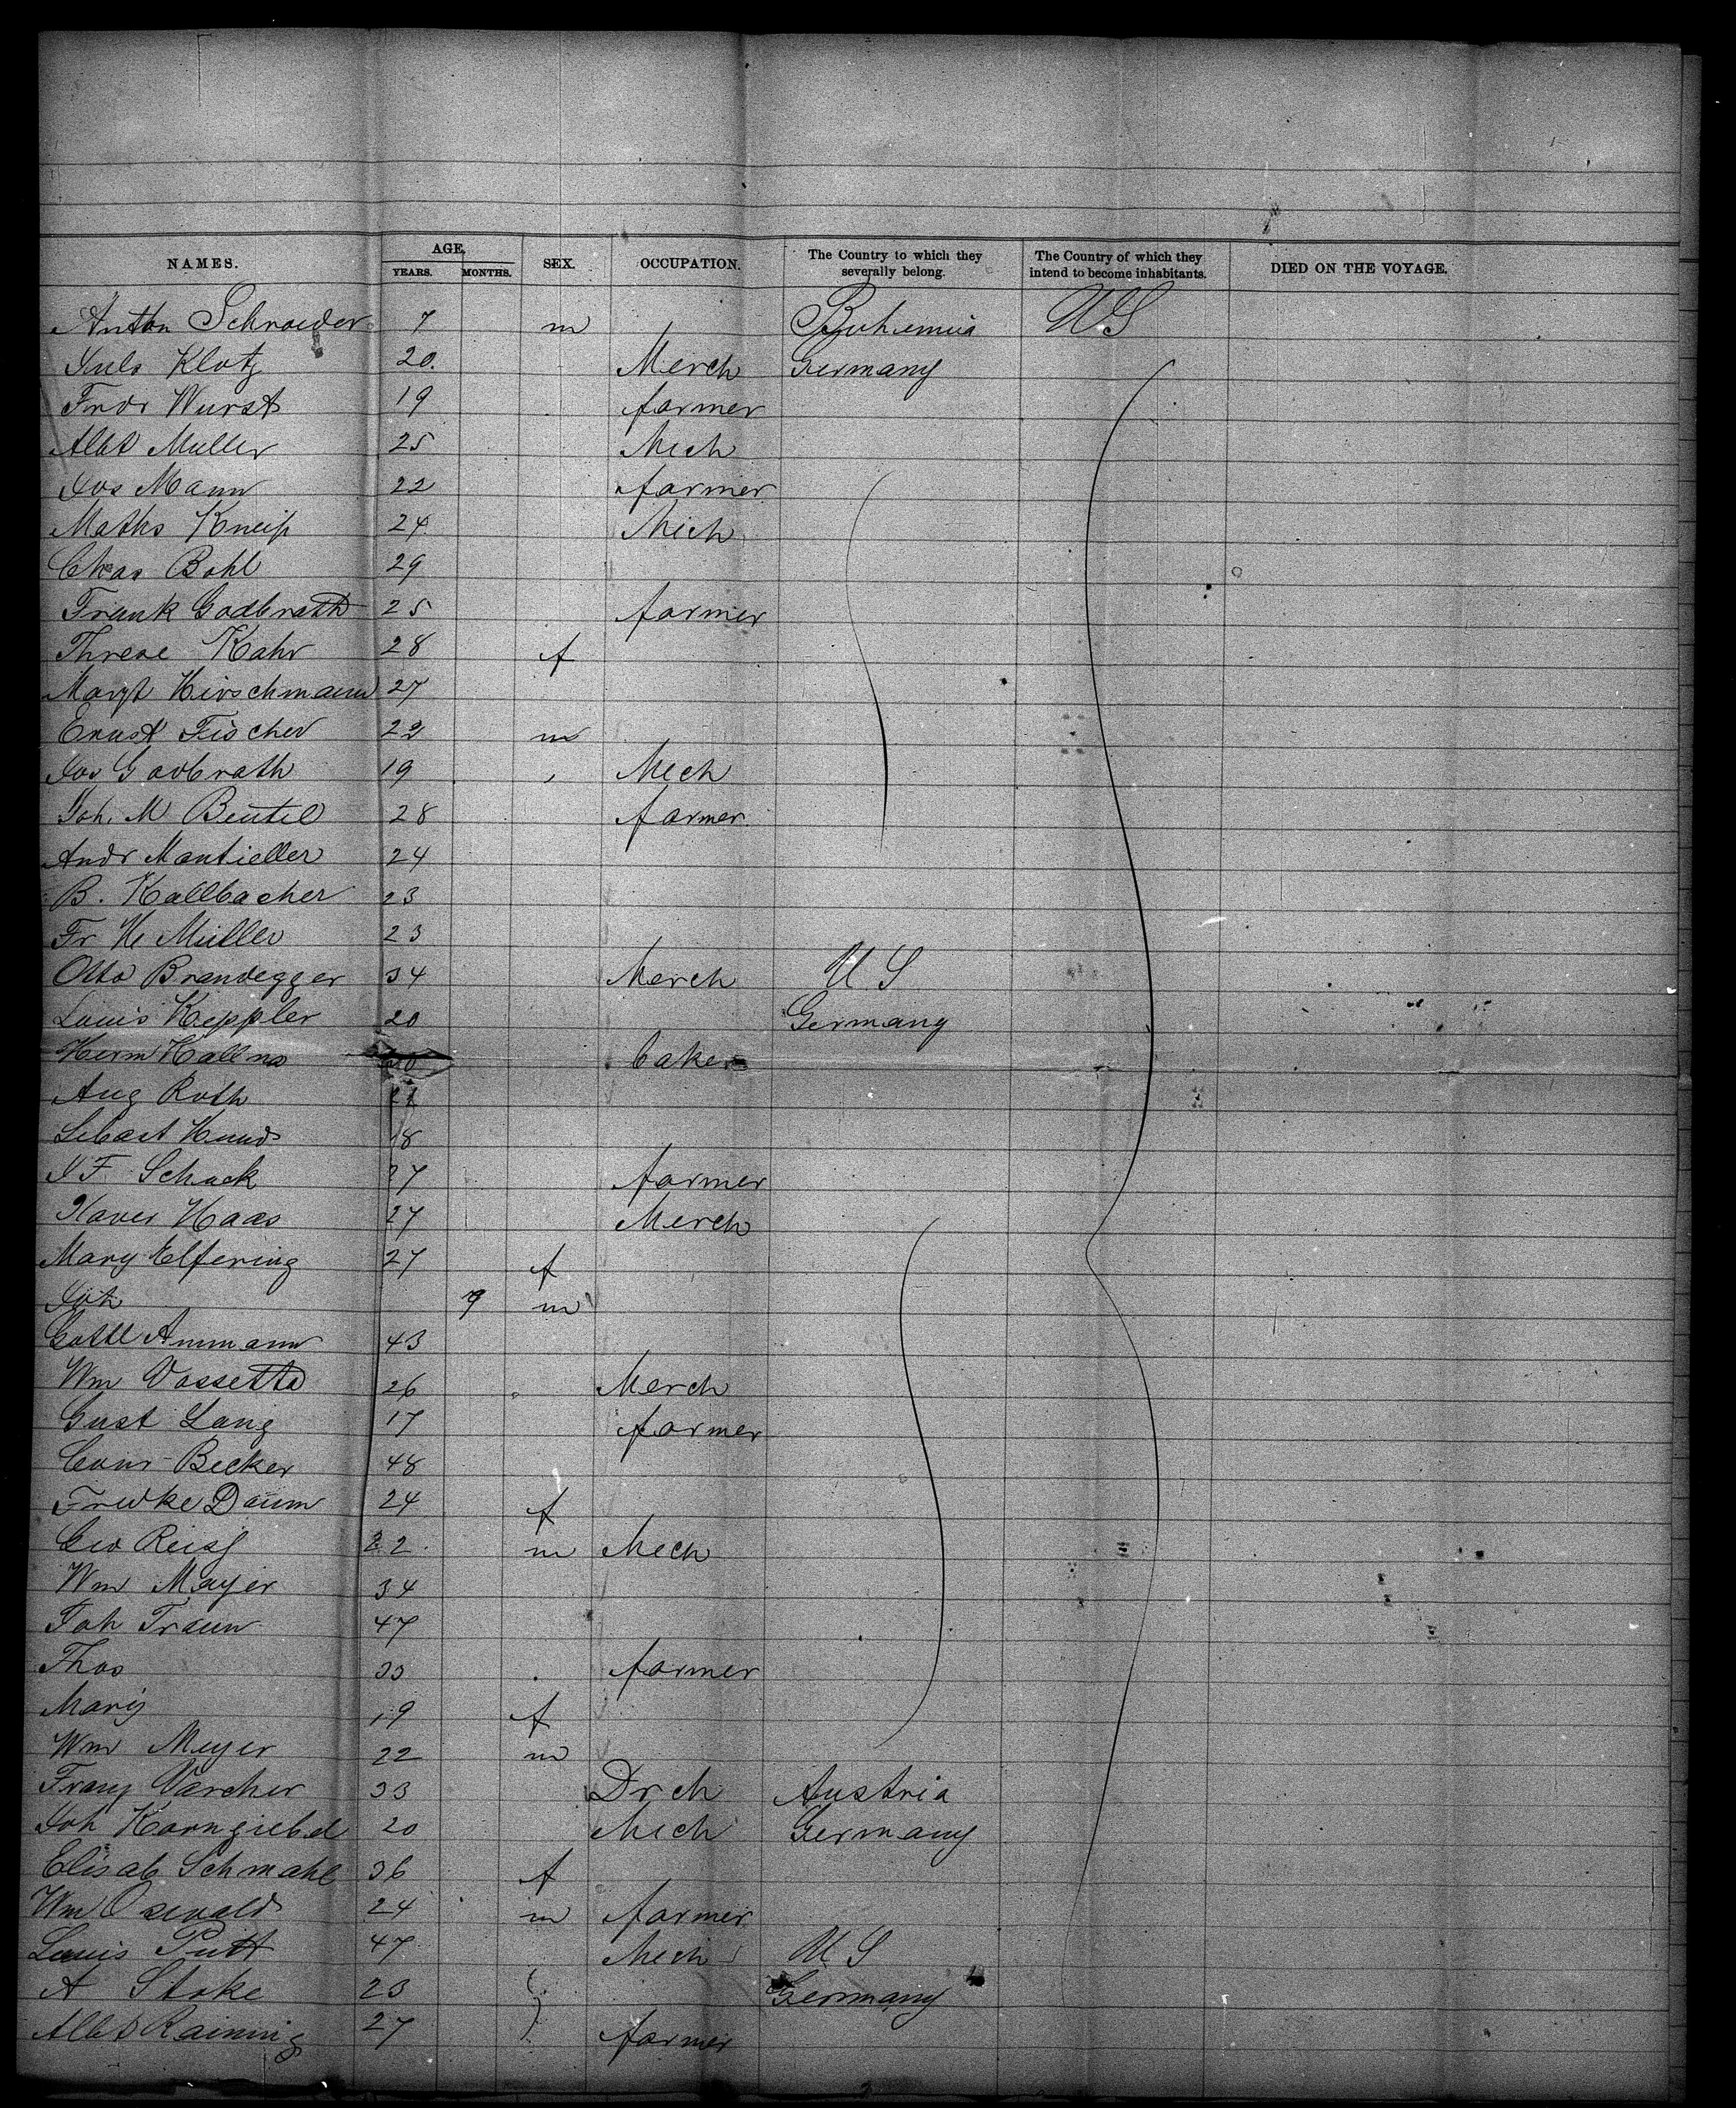 NAMES. AGE, YEARS. MONTHS. SEX. OCCUPATION. The Country to which they severally belong. The Country of which they intend to become inhabitants. DIED ON THE VOYAGE.
Anton Schroeder 7 m Bohemia US
Juls Klotz 20 Merch Germany
Fredr Wurst 19 farmer
Albt Muller 25 Mech
Jos Mann 22 farmer
Maths Kneip 24 Mech
Chas Bohl 29
Frank Godbrath 25 farmer
Threse Kahr 28 f
Margt Hirschmann 27
Ernst Fischer 22 m
Jos Godbrath 19 Mech
Joh. M Beutel 28 farmer
Andr Mantieller 24
B. Kallbacher 23
Fr He Müller 23
Otto Brandegger 34 Merch US
Louis Keppler 20 Germany
Herm Hallmo baker
Aug Roth
Sebast Hund 18
J F Schack 27 farmer
Xaver Haas 27 Merch
Mary Elfering 27 f
Joh 9 m
Gottl Ammann 43
Wm Vossetto 26 Merch
Gust Lang 17 farmer
Conr Becker 48
Fredke Daum 24 f
Geo Reisf 22 m Mech
Wm Mayer 34
Joh Traun 47
Thos 33 farmer
Marij 19 f
Wm Meyer 22 m
Franz Varcher 33 Drch Austria
Joh Korngiebel 20 Mech Germany
Elisab Schmahl 36 f
Wm Oswald 24 m farmer
Louis Putt 47 Mech US
A Stoke 23 Germany
Albt Raining 27 farmer